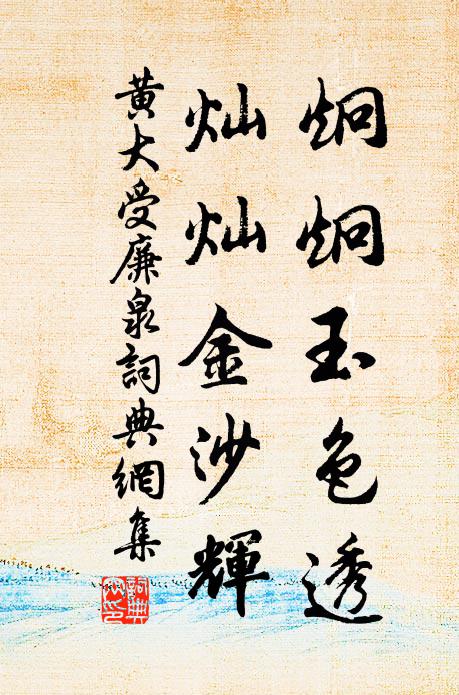 炯炯玉色透
灿灿金沙輝
黃大受廉泉詞典網集